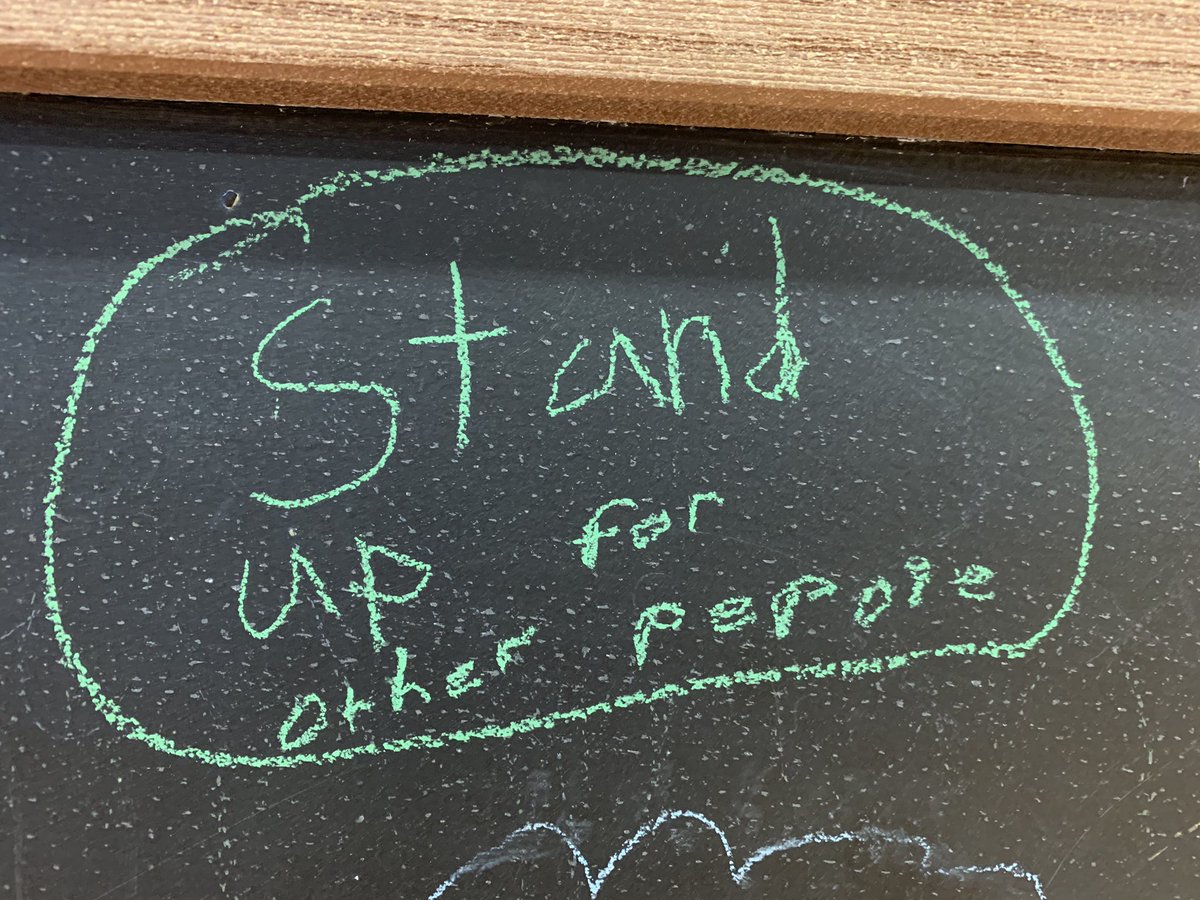 Stand
up for
other pepole